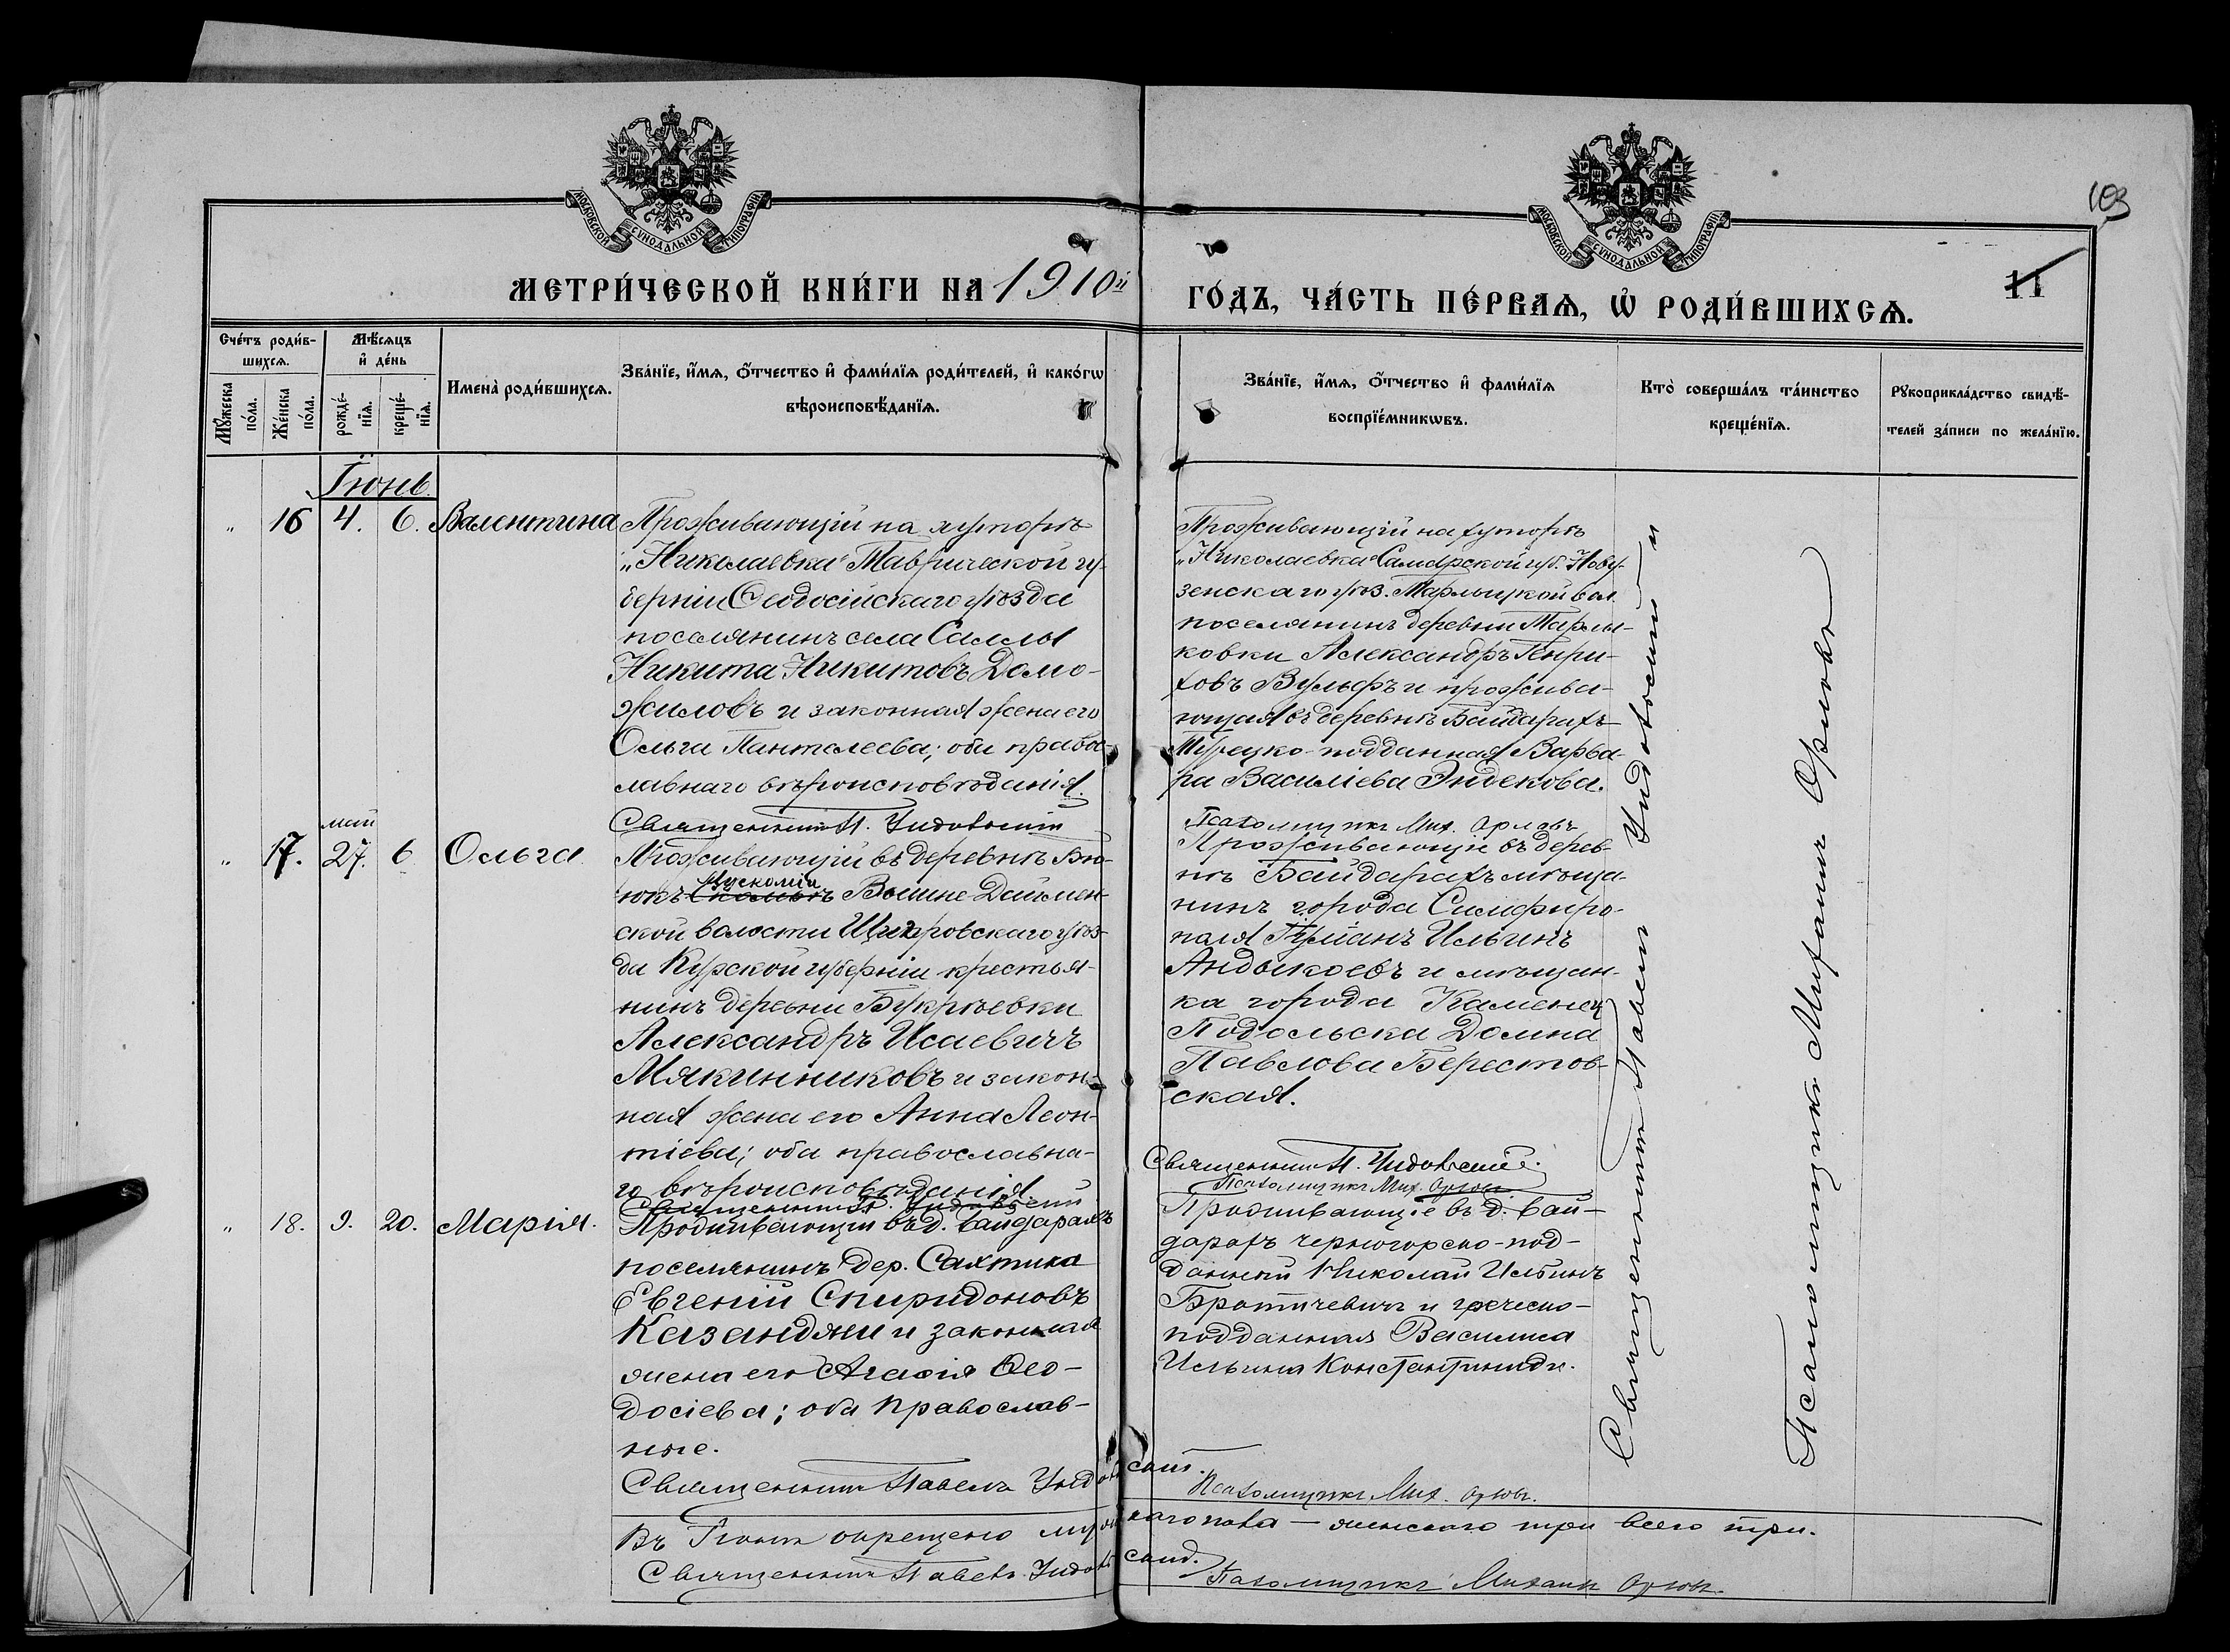 103
МОСКОВСКОЙ СѴНОДАЛЬНОЙ ТИПОГРАФІИ
МОСКОВСКОЙ СѴНОДАЛЬНОЙ ТИПОГРАФІИ
МЕТРИ́ЧЕСКОЙ КНИ́ГИ НА 1910й
ГО́ДЪ, ЧА́СТЬ ПЕ́РВАѦ, Ѡ РОДИ́ВШИХСѦ.
11
Сче́тъ роди́в-
шихсѧ.
Мꙋ́жеска по́ла.
Же́нска по́ла.
Мѣ́сѧцъ
и҆ де́нь
рожде́-
нїѧ.
креще́-
нїѧ.
Имена̀ роди́вшихсѧ.
Зва́нїе, и҆́мѧ, ѻ҆́тчество и҆ фами́лїѧ роди́телей, и҆ како́гѡ
вѣроисповѣ́данїѧ.
Зва́нїе, и҆́мѧ, ѻ҆́тчество и҆ фами́лїѧ
воспрїе́мникѡвъ.
Кто̀ соверша́лъ та́инство
креще́нїѧ.
Рꙋкоприкла́дство свидѣ́-
телей за́писи по жела́нїю.
Іюнь.
" 16 4. 6. Валентина
Проживающій на хуторѣ
„Николаевка" Таврической гу-
берніи Ѳеодосійскаго уѣзда
поселянинъ села Саллы
Никита Никитовъ Домо-
жиловъ и законная жена его
Ольга Пантелеева; оба право-
славнаго вѣроисповѣданія.
Священникъ П. Чидовскій
Проживающій на хуторѣ
„Николаевка" Самарской губ. Новоу-
зенскаго уѣз. вол.
поселянинъ деревни Тарлы-
ковки Александръ Генри-
ховъ Вульфъ и прожива-
ющая въ деревнѣ Байдарахъ
Турецко-подданная Варва-
ра Васильева Эндекова.
Псаломщикъ Мих. Орловъ
май
" 17. 27. 6 Ольга
Проживающій въ деревнѣ Бю-
юкъ Мускомія Выше-
ской волости Щигровскаго уѣз-
да Курской губерніи крестья-
нинъ деревни Букрѣевки
Александръ Исаевичъ
Мякинниковъ и закон-
ная жена его Анна Леон-
тіева; оба православна-
го вѣроисповѣданія.
Священникъ П. Чидовскій
Проживающіе въ дерев-
нѣ Байдарахъ мѣща-
нинъ города Симферо-
поля Ильинъ
и мѣщан-
ка города Каменец
Подольска Домна
Павлова Берестов-
ская.
Священникъ П. Чидовскій.
Псаломщикъ Мих. Орловъ
" 18. 9. 20. Марія.
Проживающій въ д. Байдарахъ
поселянинъ дер. Сахтика
Евгеній Спиридоновъ
Казанджи и законная
жена его Агаѳія Ѳео-
досіева; оба православ-
ные.
Священникъ Павелъ Чидовскій.
Проживающіе въ д. Бай-
дарахъ черногорско-под-
данный Николай Ильинъ
Братичевичъ и греческо-
подданная Василиса
Ильина Константиниди.
Псаломщикъ Мих. Орловъ.
Въ Іюнѣ окрещено мужскаго пола — женскаго три всего три.
Священникъ Павелъ Чидовскій.
Псаломщикъ Михаилъ Орловъ.
Священникъ Павелъ Чидовскій и
Псаломщикъ Михаилъ Орловъ